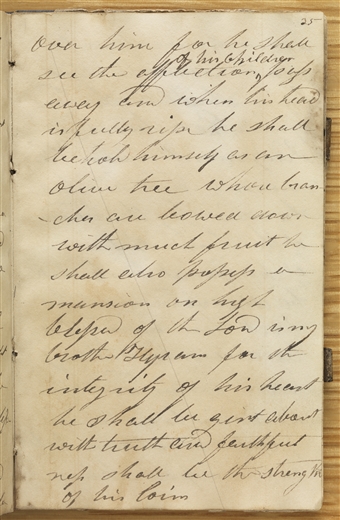 25
over him for he shall
of his children
see the affliction pass
away and when his head
is fully ripe he shall
behold himself as an
olive tree whose bran
-ches are bowed down
with much fruit he
shall also possess a
mansion on high
blessed of the Lord is my
brother Hyram for the
integrity of his heart
he shall be girt about
with truth and faithful
ness shall be the strength
of his loins